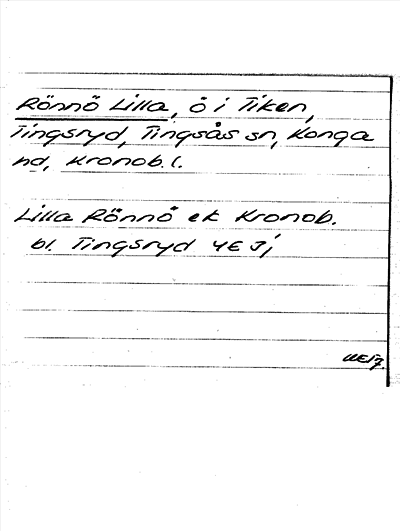 Rönnö Lilla, ö i Tiken,
Tingsryd, Tingsås sn, Konga
hd, Kronob. l.
Lilla Rönnö ek Kronob.
bl. Tingsryd 4E